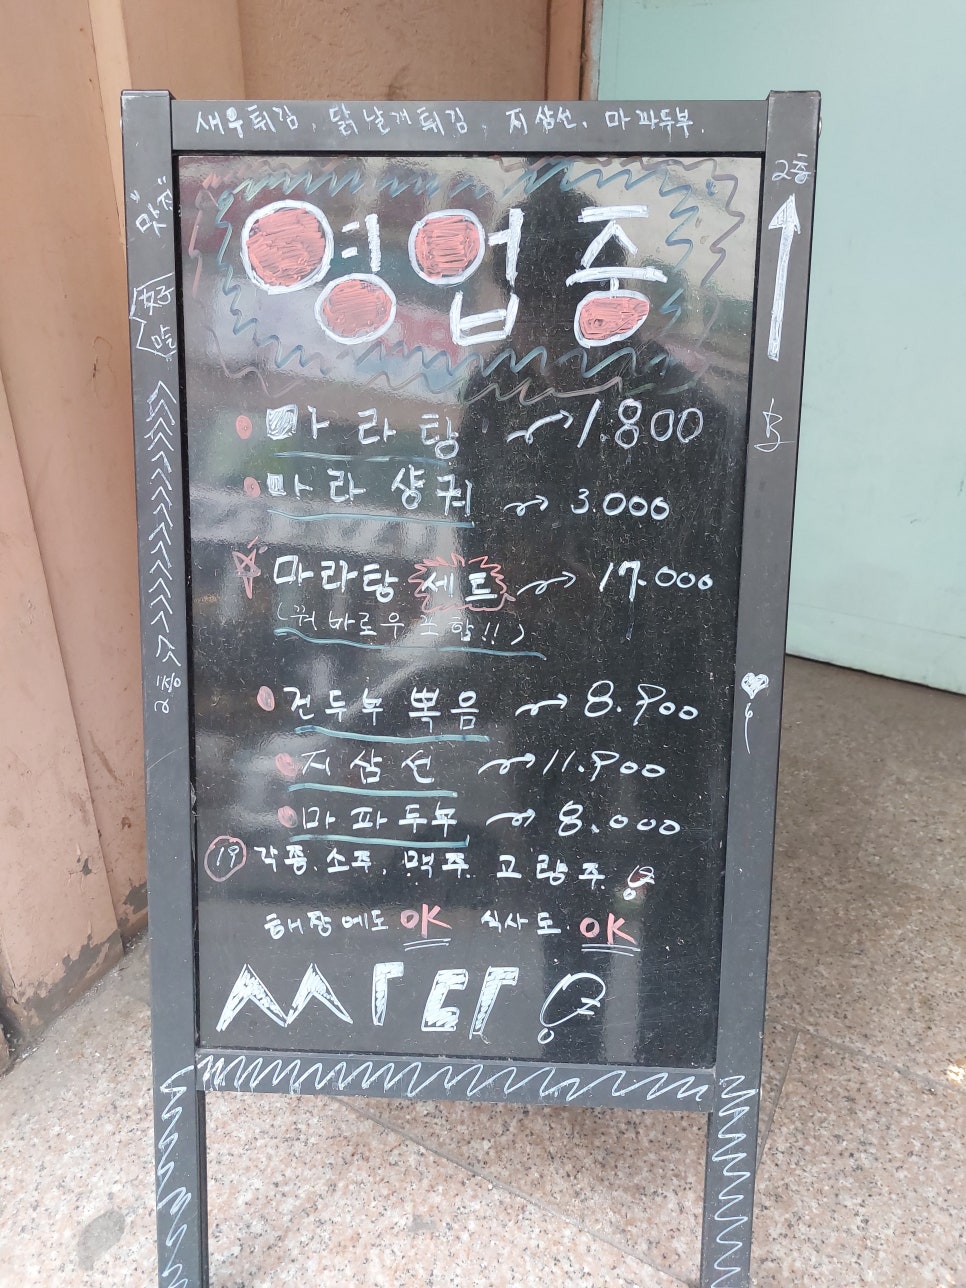 새우튀김, 닭날개튀김, 지삼선, 마파두부.
2층
好
영업중
마라탕 1.800
마라샹궈 3.000
마라탕 세트 17.000
(꿔바로우 포함!!)
건두부 볶음 8.900
지삼선 11.900
마파두부 8.000
19 각종. 소주, 맥주. 고량주.
해장에도 OK 식사도. OK
싸다